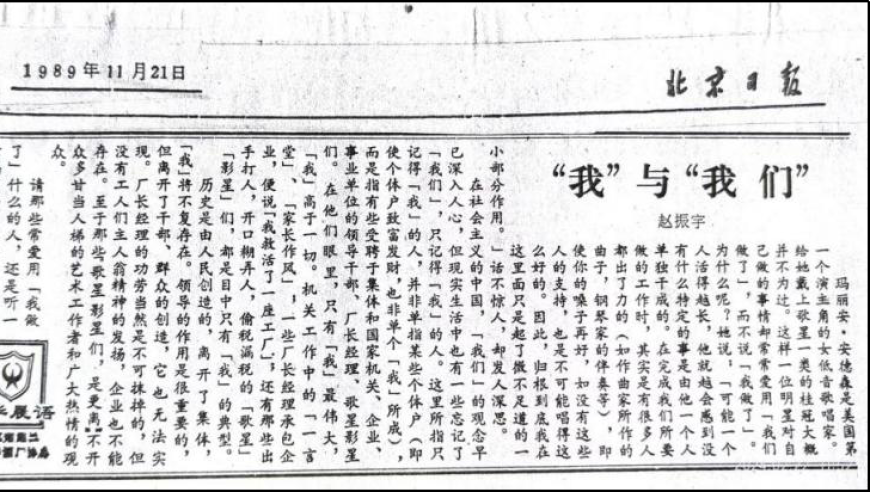 1989年11月21日
北京日报
“我”与“我们”
赵振宇
玛丽安·安德森是美国第
一个演主角的女低音歌唱家。
给她戴上歌星一类的桂冠大概
并不为过。这样一位明星对自
己做的事情却常常爱用“我们
做了”,而不说“我做了”。
为什么呢?她说:“可能一个
人活得越长,他就越会感到没
有什么特定的事是由他一个人
单独干成的。在完成我们所要
做的工作时,其实是有很多人
都出了力的(如作曲家所作的
曲子,钢琴家的伴奏等),即
使你的嗓子再好,如没有这些
人的支持,也是不可能唱得这
么好的。因此,归根到底我在
这里面只是起了微不足道的一
小部分作用。”话不惊人,却发人深思。
在社会主义的中国,“我们”的观念早
已深入人心,但现实生活中也有一些忘记了
“我们”,只记得“我”的人。这里所指只
记得“我”的人,并非单指某些个体户(即
使个体户致富发财,也非单个“我”所成),
而是指有些受聘于集体和国家机关、企业
事业单位的领导干部、厂长经理、歌星影星
们。在他们眼里,只有“我”最伟大,
“我”高于一切。机关工作中的“一言
堂”、“家长作风”,一些厂长经理承包企
业,便说“我救活了一座工厂”;还有那些出
手打人,开口糊弄人,偷税漏税的“歌星”
“影星”们,都是目中只有“我”的典型。
历史是由人民创造的,离开了集体,
“我”将不复存在。领导的作用是很重要的,
但离开了干部、群众的创造,它也无法实
现。厂长经理的功劳当然是不可抹掉的,但
没有工人们主人翁精神的发扬,企业也不能
存在。至于那些歌星影星们,是更离不开
众多甘当人梯的艺术工作者和广大热情的观
众。
请那些常爱用“我做
了”什么的人,还是听一